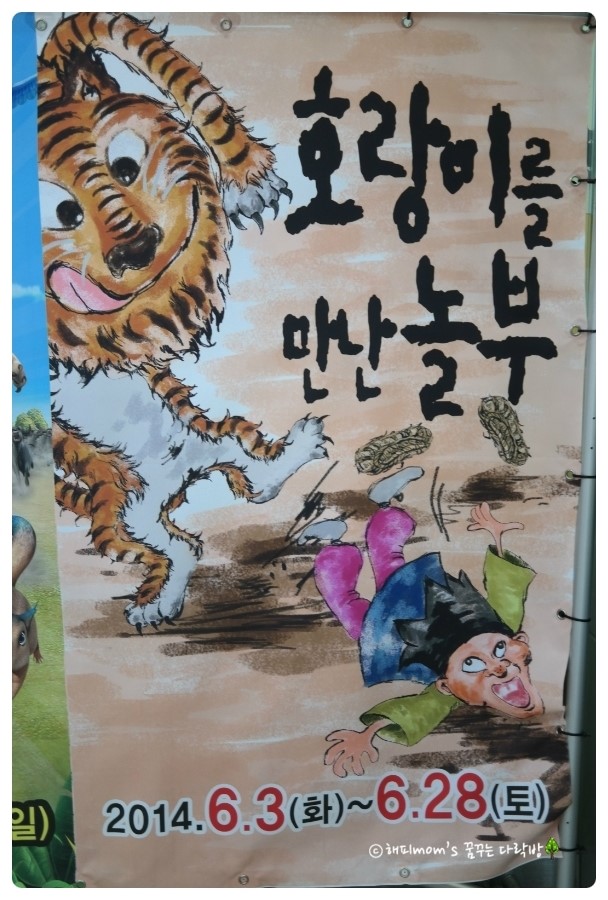 호랑이를
만난 놀부
2014.6.3(화)~6.28(토)
일)
ⓒ해피mom's 꿈꾸는 다락방